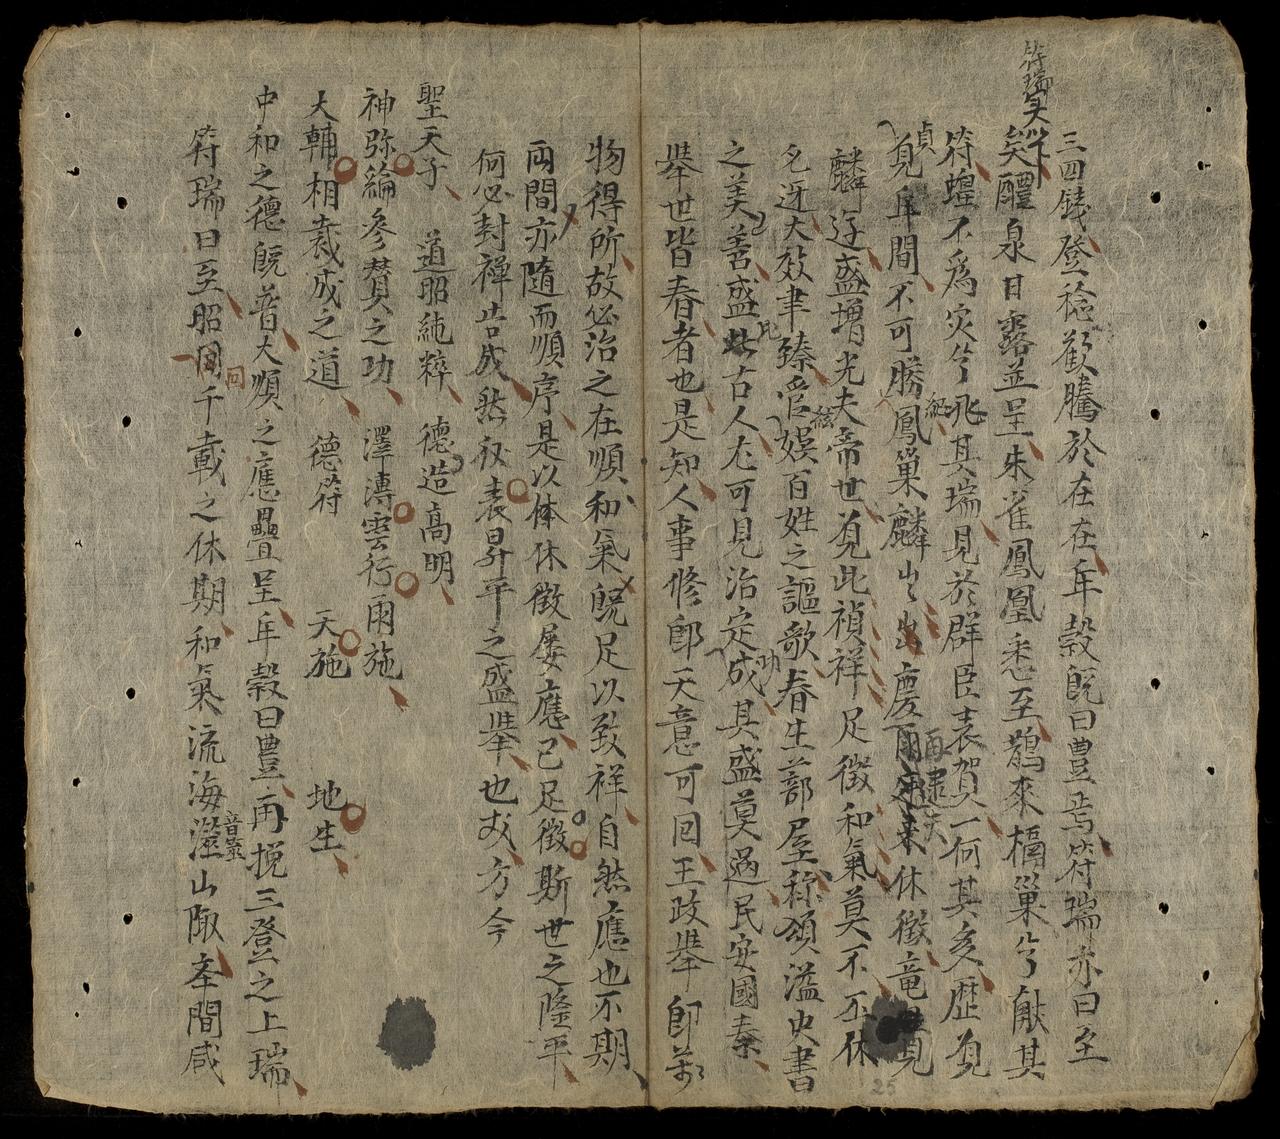 符瑞
三四錢登稔歡騰於在在年穀既曰豊焉符瑞亦曰至
矣醴泉日露並呈朱雀鳳凰悉至鵲來槅巢兮獻其
符蝗不為灾兮飛其瑞見於群臣表賀一何其亥歴覓
貞
覓年間不可勝紀鳳巢麟出慶雨來休徵竜見
麟遊盛增光夫帝世覓此禎祥足徵和氣莫不丕休
名迓大效聿臻管絃娱百姓之謳歌春生蔀屋称頌溢史書
之美善盛此古人尤可見治定功成其盛莫過民安國泰
举世皆春者也是知人事修郎天意可回王政举即萬
物得所故必治之在順和氣既足以致祥自然應也不期
両間亦隨而順序是以体休徵屡應已足徵斯世之隆平
何必封禅告成然後表昇平之盛举也哉方今
聖天子 道昭純粹 德造高明
神弥綸參賛之功 澤溥雲行雨施
大輔相裁成之道 德符 天施 地生
中和之德既普大順之應疊呈年穀曰豊再挽三登之上瑞
符瑞曰至昭回千載之休期和氣流海澨山陬夲間咸
音筮
25